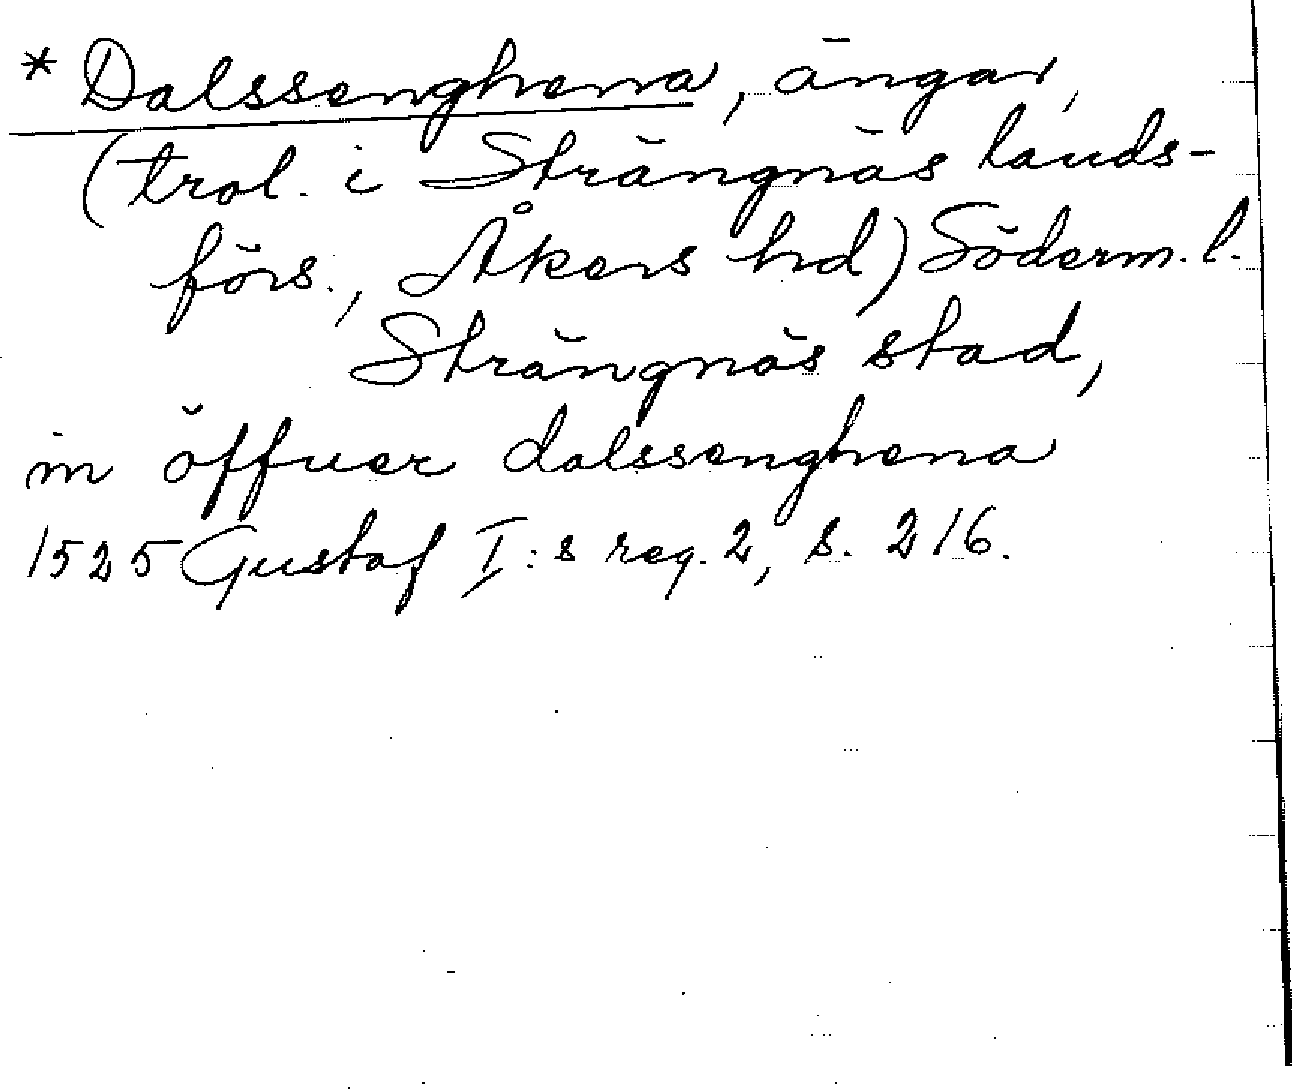 * Dalssenghena, ängar,
(trol. i Strängnäs lands-
förs., Åkers hd) Söderm. l.
Strängnäs stad,
in öffuer dalssenghena
1525 Gustaf I:s reg. 2, s. 216.